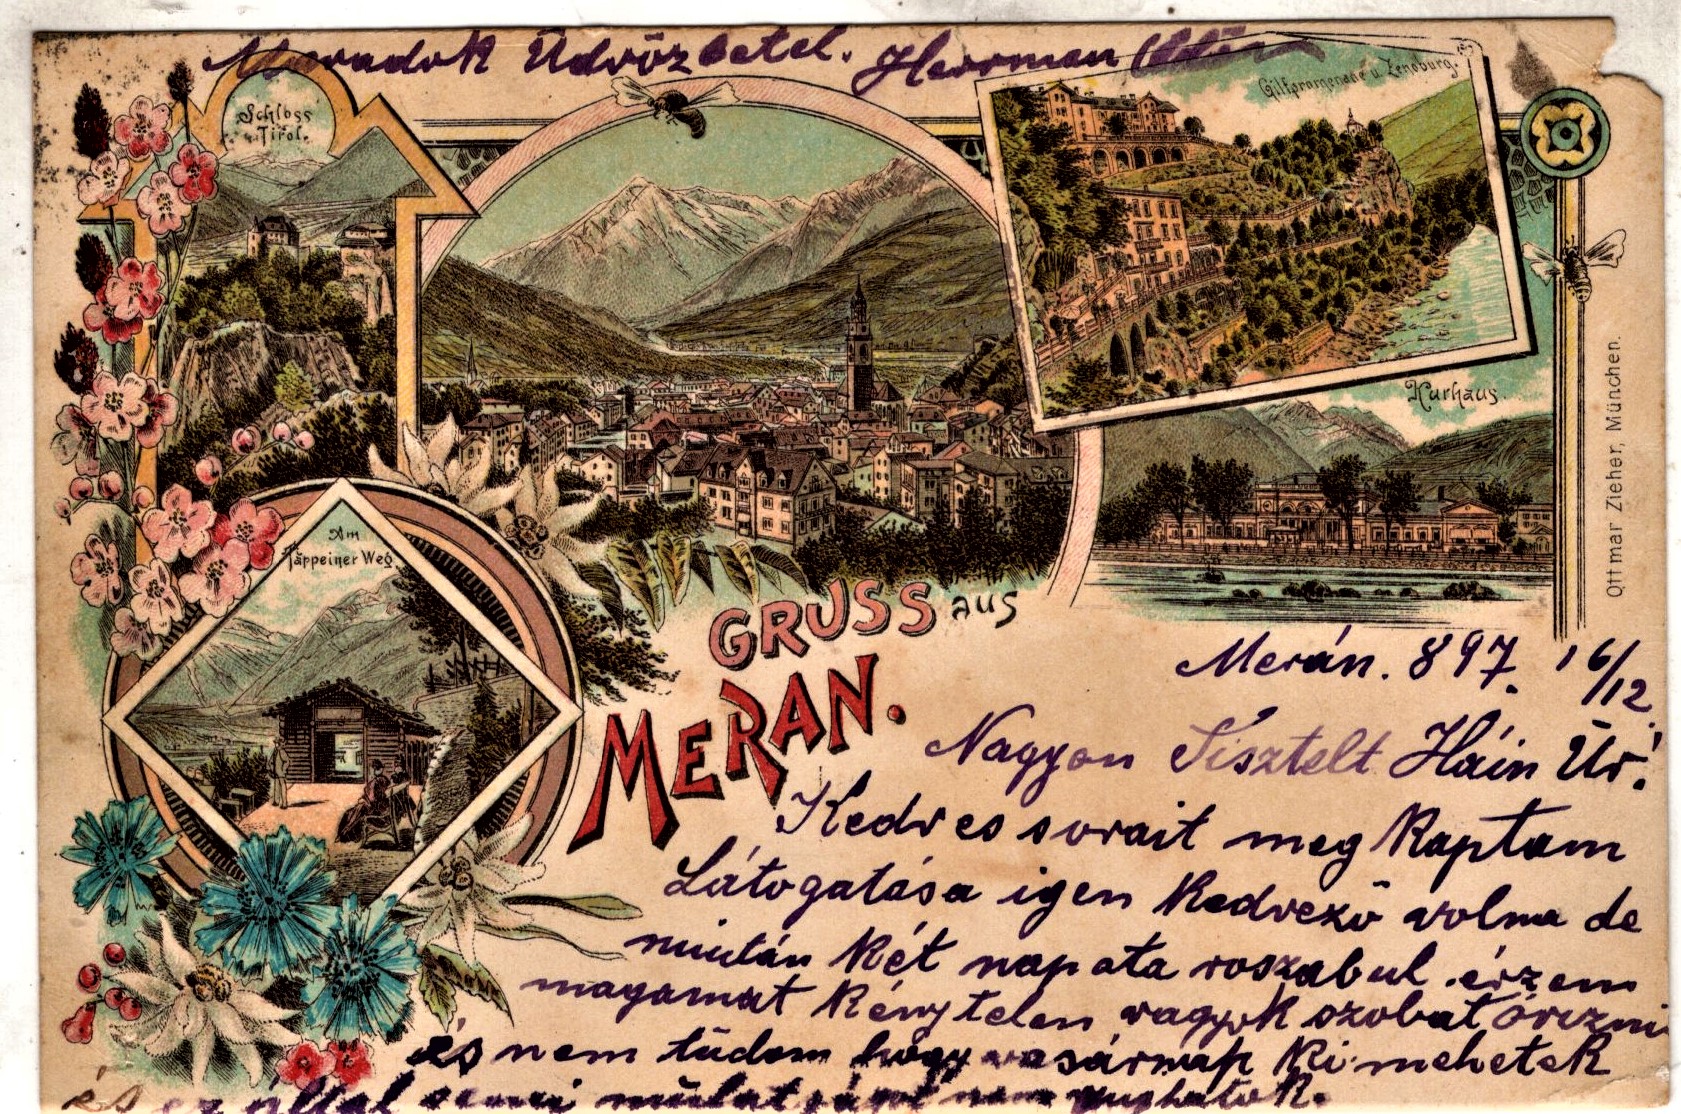 Maradok Üdvözletel. Herrman
Schloss
Tirol.
Gilfpromenade u. Zenoburg.
Kurhaus.
Am
Tappeiner Weg.
GRUSS aus
MERAN.
Ottmar Zieher, München.
Merán. 897. 16/12.
Nagyon Tisztelt Háin Úr!
Kedves sorait meg kaptam
Látogatása igen kedvező volna de
miután két nap ata roszabul érzem
magamat kénytelen vagyok szobat őrizni
és nem tudom hogy vasárnap ki mehetek
és ez által semi mulatságot nem nyujhatok.